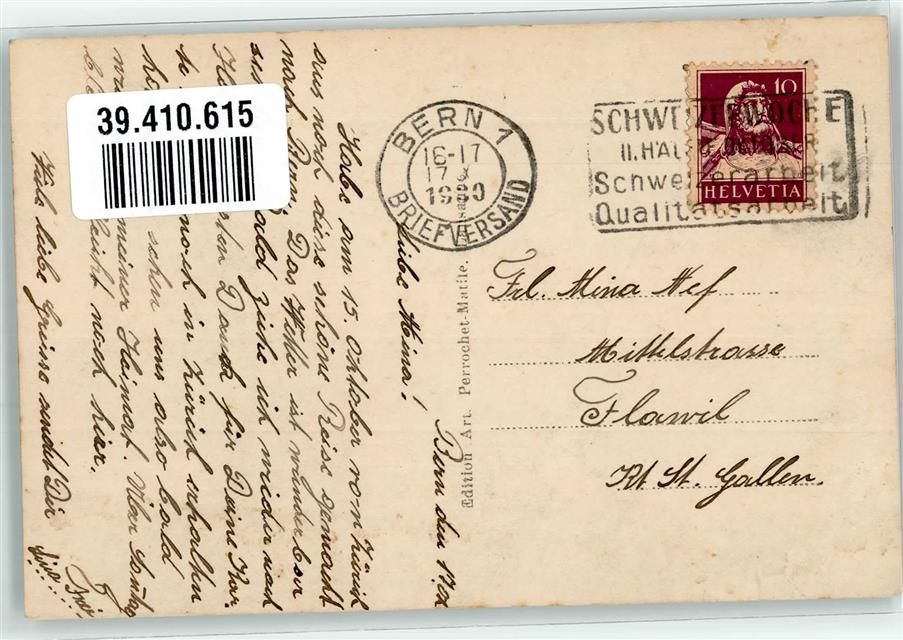 39.410.615
BERN 1
16-17
17.
1930
BRIEFVERSAND
SCHWEIZERWOCHE
II. HÄLFTE OKTOBER
Schweizerarbeit
Qualitätsarbeit
10
HELVETIA
Frl. Mina Nef
Mittelstrasse
Flawil
Kt St. Gallen.
Edition Art. Perrochet-Matile.
Bern den 17.
Liebe Mina!
Habe am 15. Oktober von Zürich
aus noch diese schöne Reise gemacht
nach Bern. Das Wetter ist wunderbar
Bald ziehe ich wieder nach
Dank für Deine
noch in Zürich erhalten
sehen uns also bald
meiner Heimat. Über Sontag
noch hier.
Viele liebe Grüsse sendet Dir